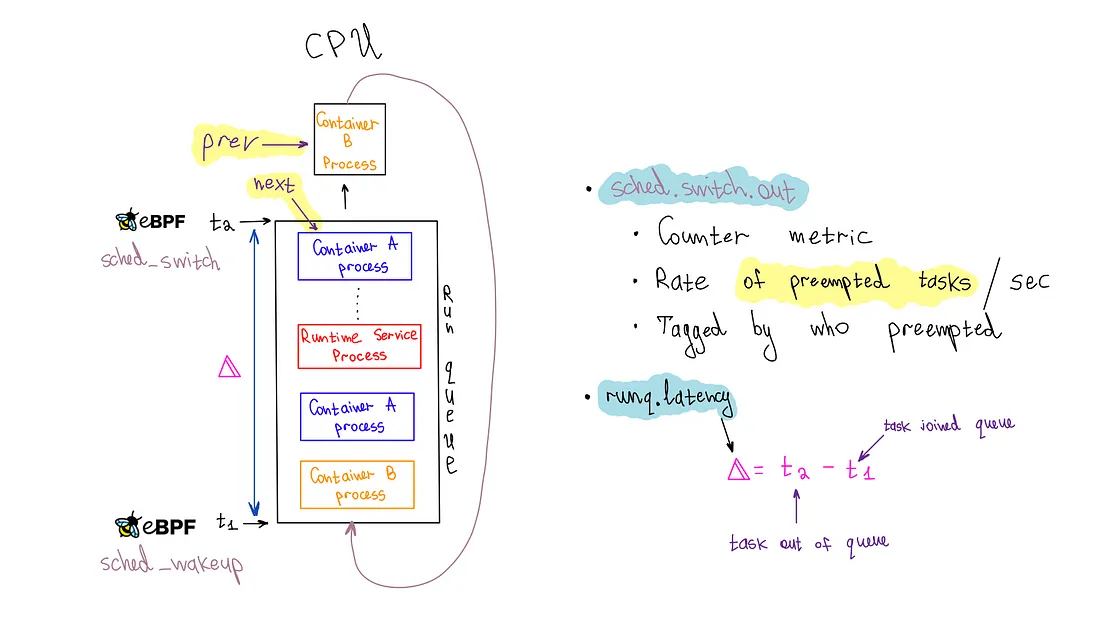 CPU
Container
B
Process
prev
next
eBPF
t2
sched_switch
Container A
process
Runtime Service
Process
Container A
process
Container B
process
Run queue
Δ
eBPF
t1
sched_wakeup
• sched.switch.out
• Counter metric
• Rate of preempted tasks / sec
• Tagged by who preempted
• runq.latency
task joined queue
Δ = t2 - t1
task out of queue